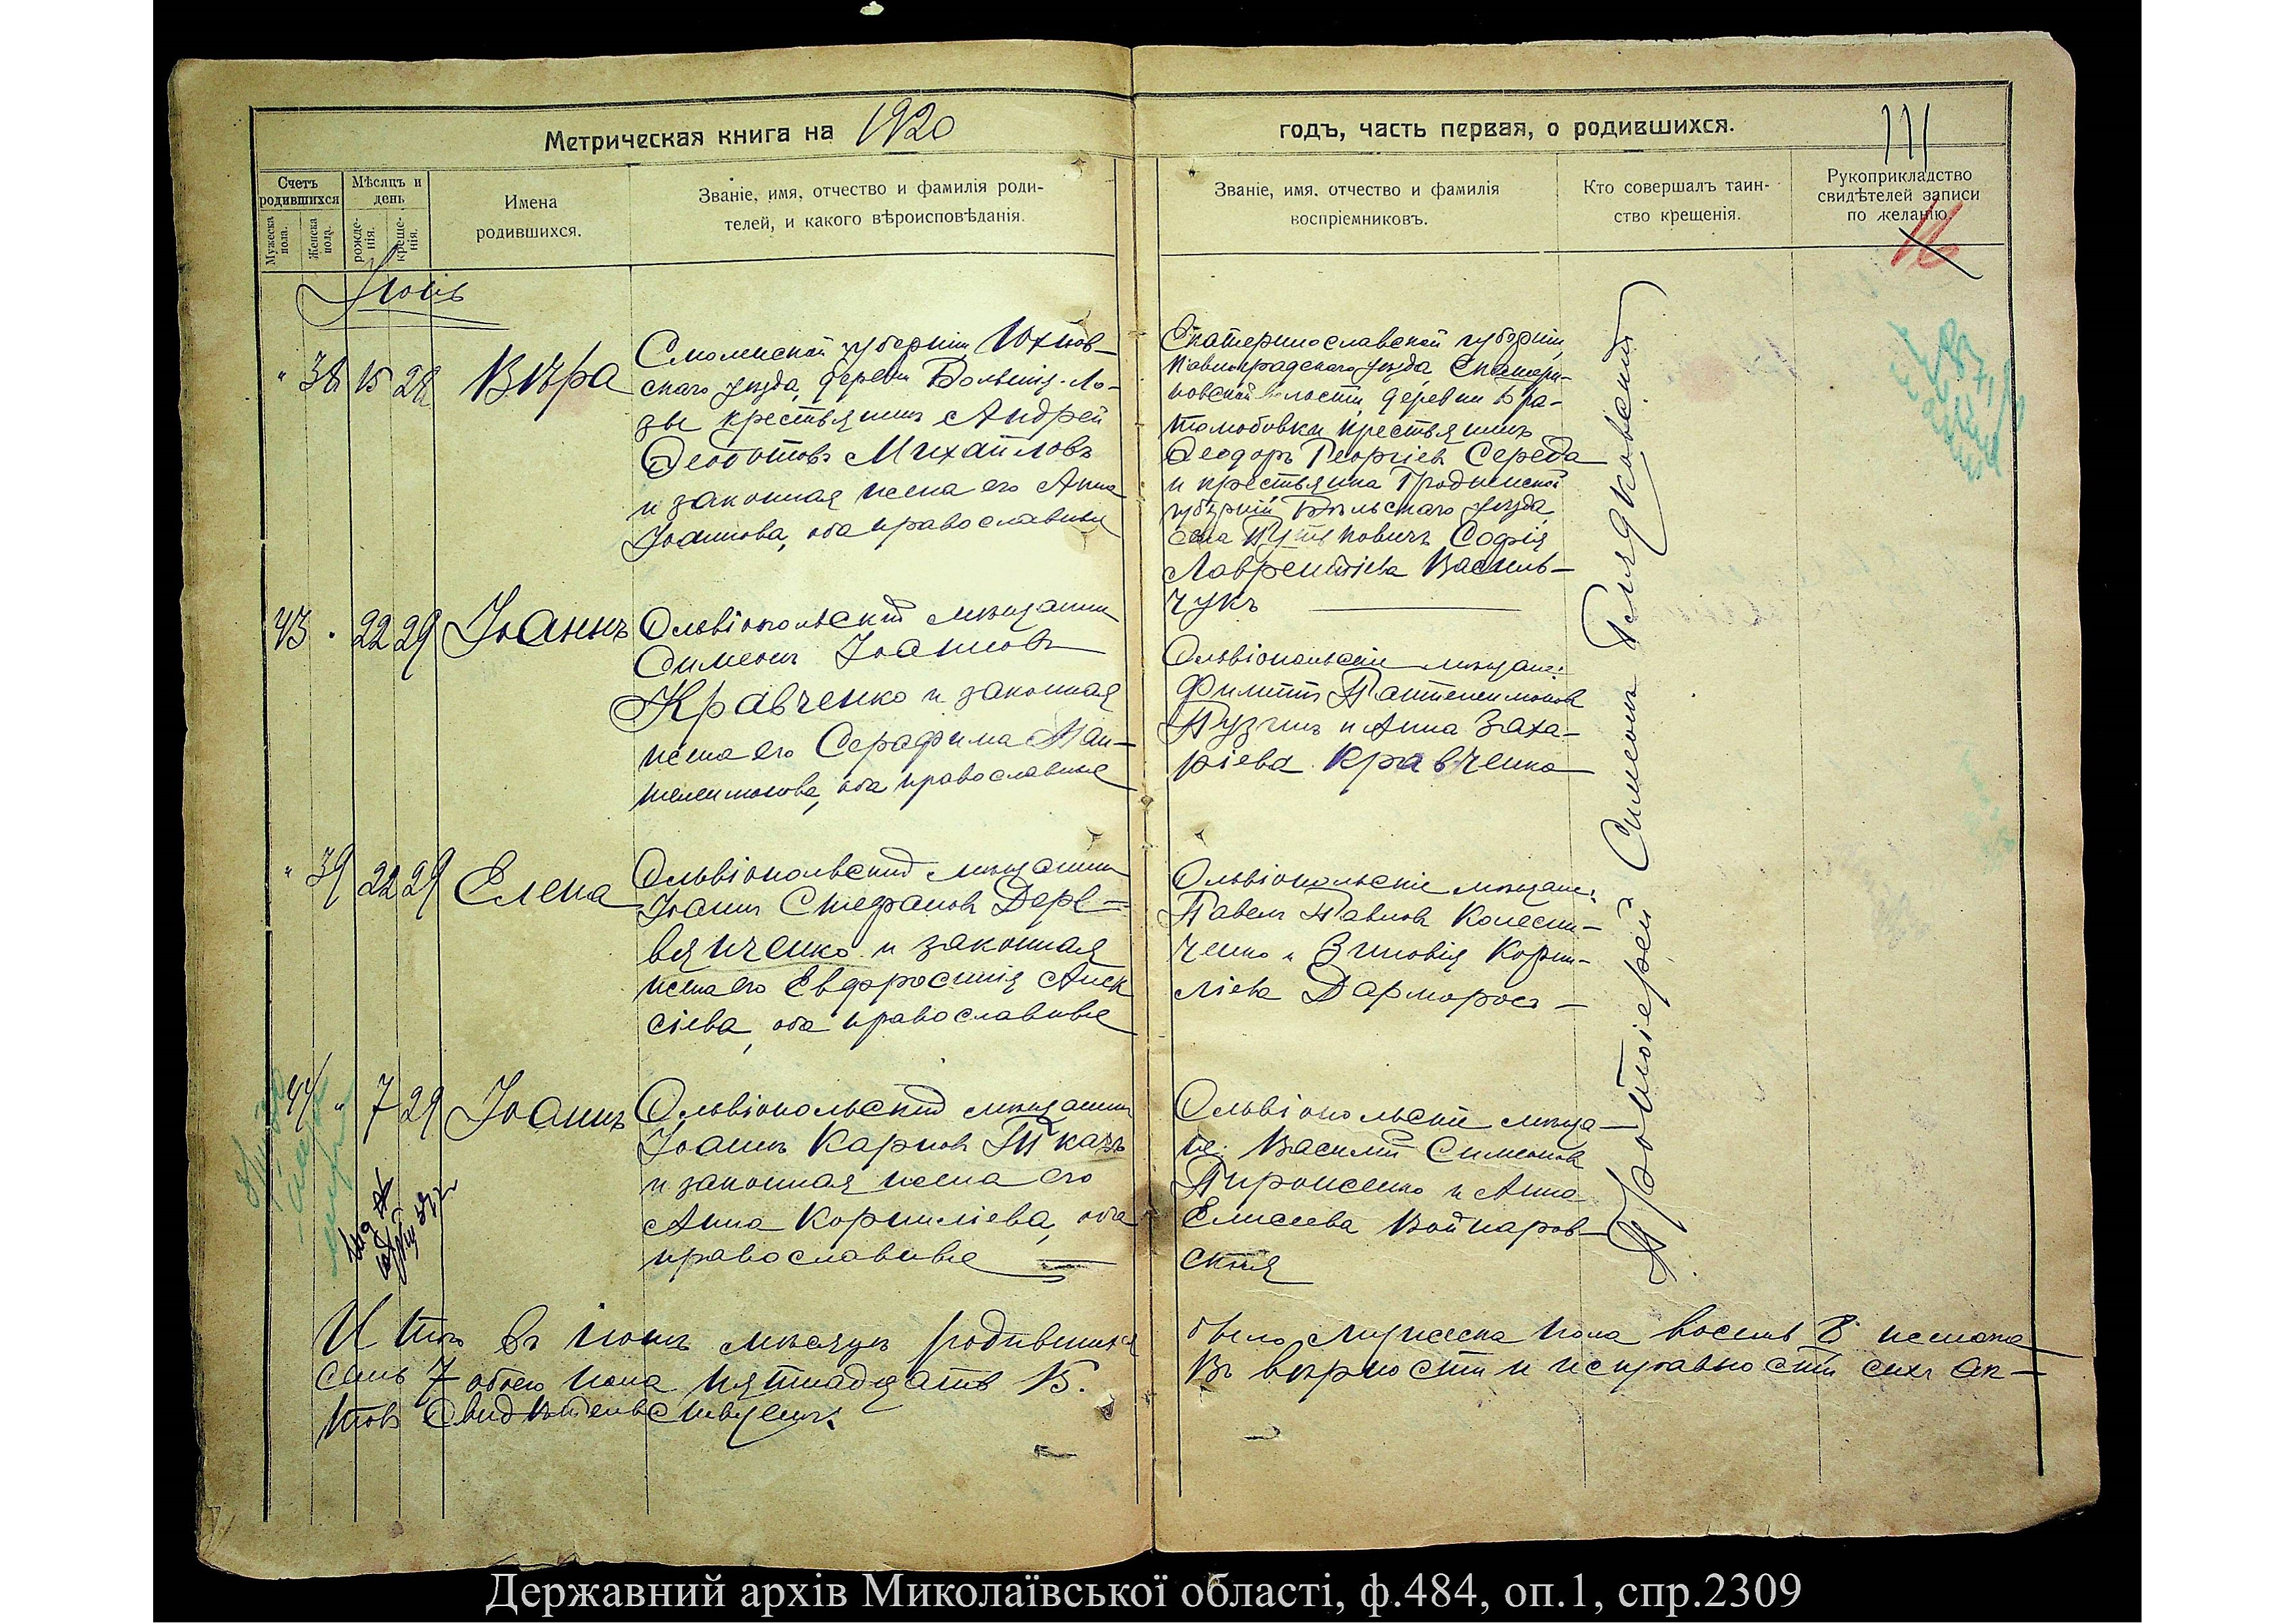 Метрическая книга на 1920
годъ, часть первая, о родившихся.
111
Счетъ родившихся
Мужеска пола.
Женска пола.
Мѣсяцъ и день
рожде-нія.
креще-нія.
Имена
родившихся.
Званіе, имя, отчество и фамилія роди-
телей, и какого вѣроисповѣданія.
Званіе, имя, отчество и фамилія
воспріемниковъ.
Кто совершалъ таин-
ство крещенія.
Рукоприкладство
свидѣтелей записи
по желанію.
16
" 38 15 28 Вѣра
Смоленской губерніи Юхнов-
скаго уѣзда, деревни Большія-Ло-
зы крестьянинъ Андрей
Ѳеодотовъ Михайловъ
и законная жена его Анна
Іоаннова, оба православные
Екатеринославской губерніи,
Павлоградскаго уѣзда
волости деревни Бра-
толюбовки крестьянинъ
Ѳеодоръ Георгіевъ Середа
и крестьянка Гродненской
губерніи Бѣльскаго уѣзда
села Софія
Лаврентіева Василь-
чукъ
43 " 22 29 Іоаннъ
Ольвіопольскій мѣщанинъ
Симеонъ Іоанновъ
Кравченко и законная
жена его Серафима Пан-
телеимонова, оба православные
Ольвіопольскіе мѣщане:
Филиппъ Пантелеимоновъ
Пузчинъ и Анна Заха-
ріева Кравченко
" 39 22 29 Елена
Ольвіопольскій мѣщанинъ
Іоаннъ Стефановъ Дере=
вянченко и законная
жена его Евфросинія Алек
сіева, оба православные
Ольвіопольскіе мѣщане:
Павелъ Павловъ Колесни-
ченко и Зиновія Корни-
ліева Дарморосъ
44 " 7 29 Іоаннъ
Ольвіопольскій мѣщанинъ
Іоаннъ Карповъ Ткачъ
и законная жена его
Анна Корниліева, оба
православные
Ольвіопольскіе мѣща-
не: Василій Симеоновъ
и Анна
Елисеева Войнаров-
ская
Протоіерей Симеонъ
Итого въ мѣсяцѣ родившихся было мужеска пола восемь 8 женска
семь 7 обоего пола пятнадцать 15. Въ вѣрности и исправности сихъ ак-
товъ свидѣтельствуемъ.
Державний архів Миколаївської області, ф.484, оп.1, спр.2309